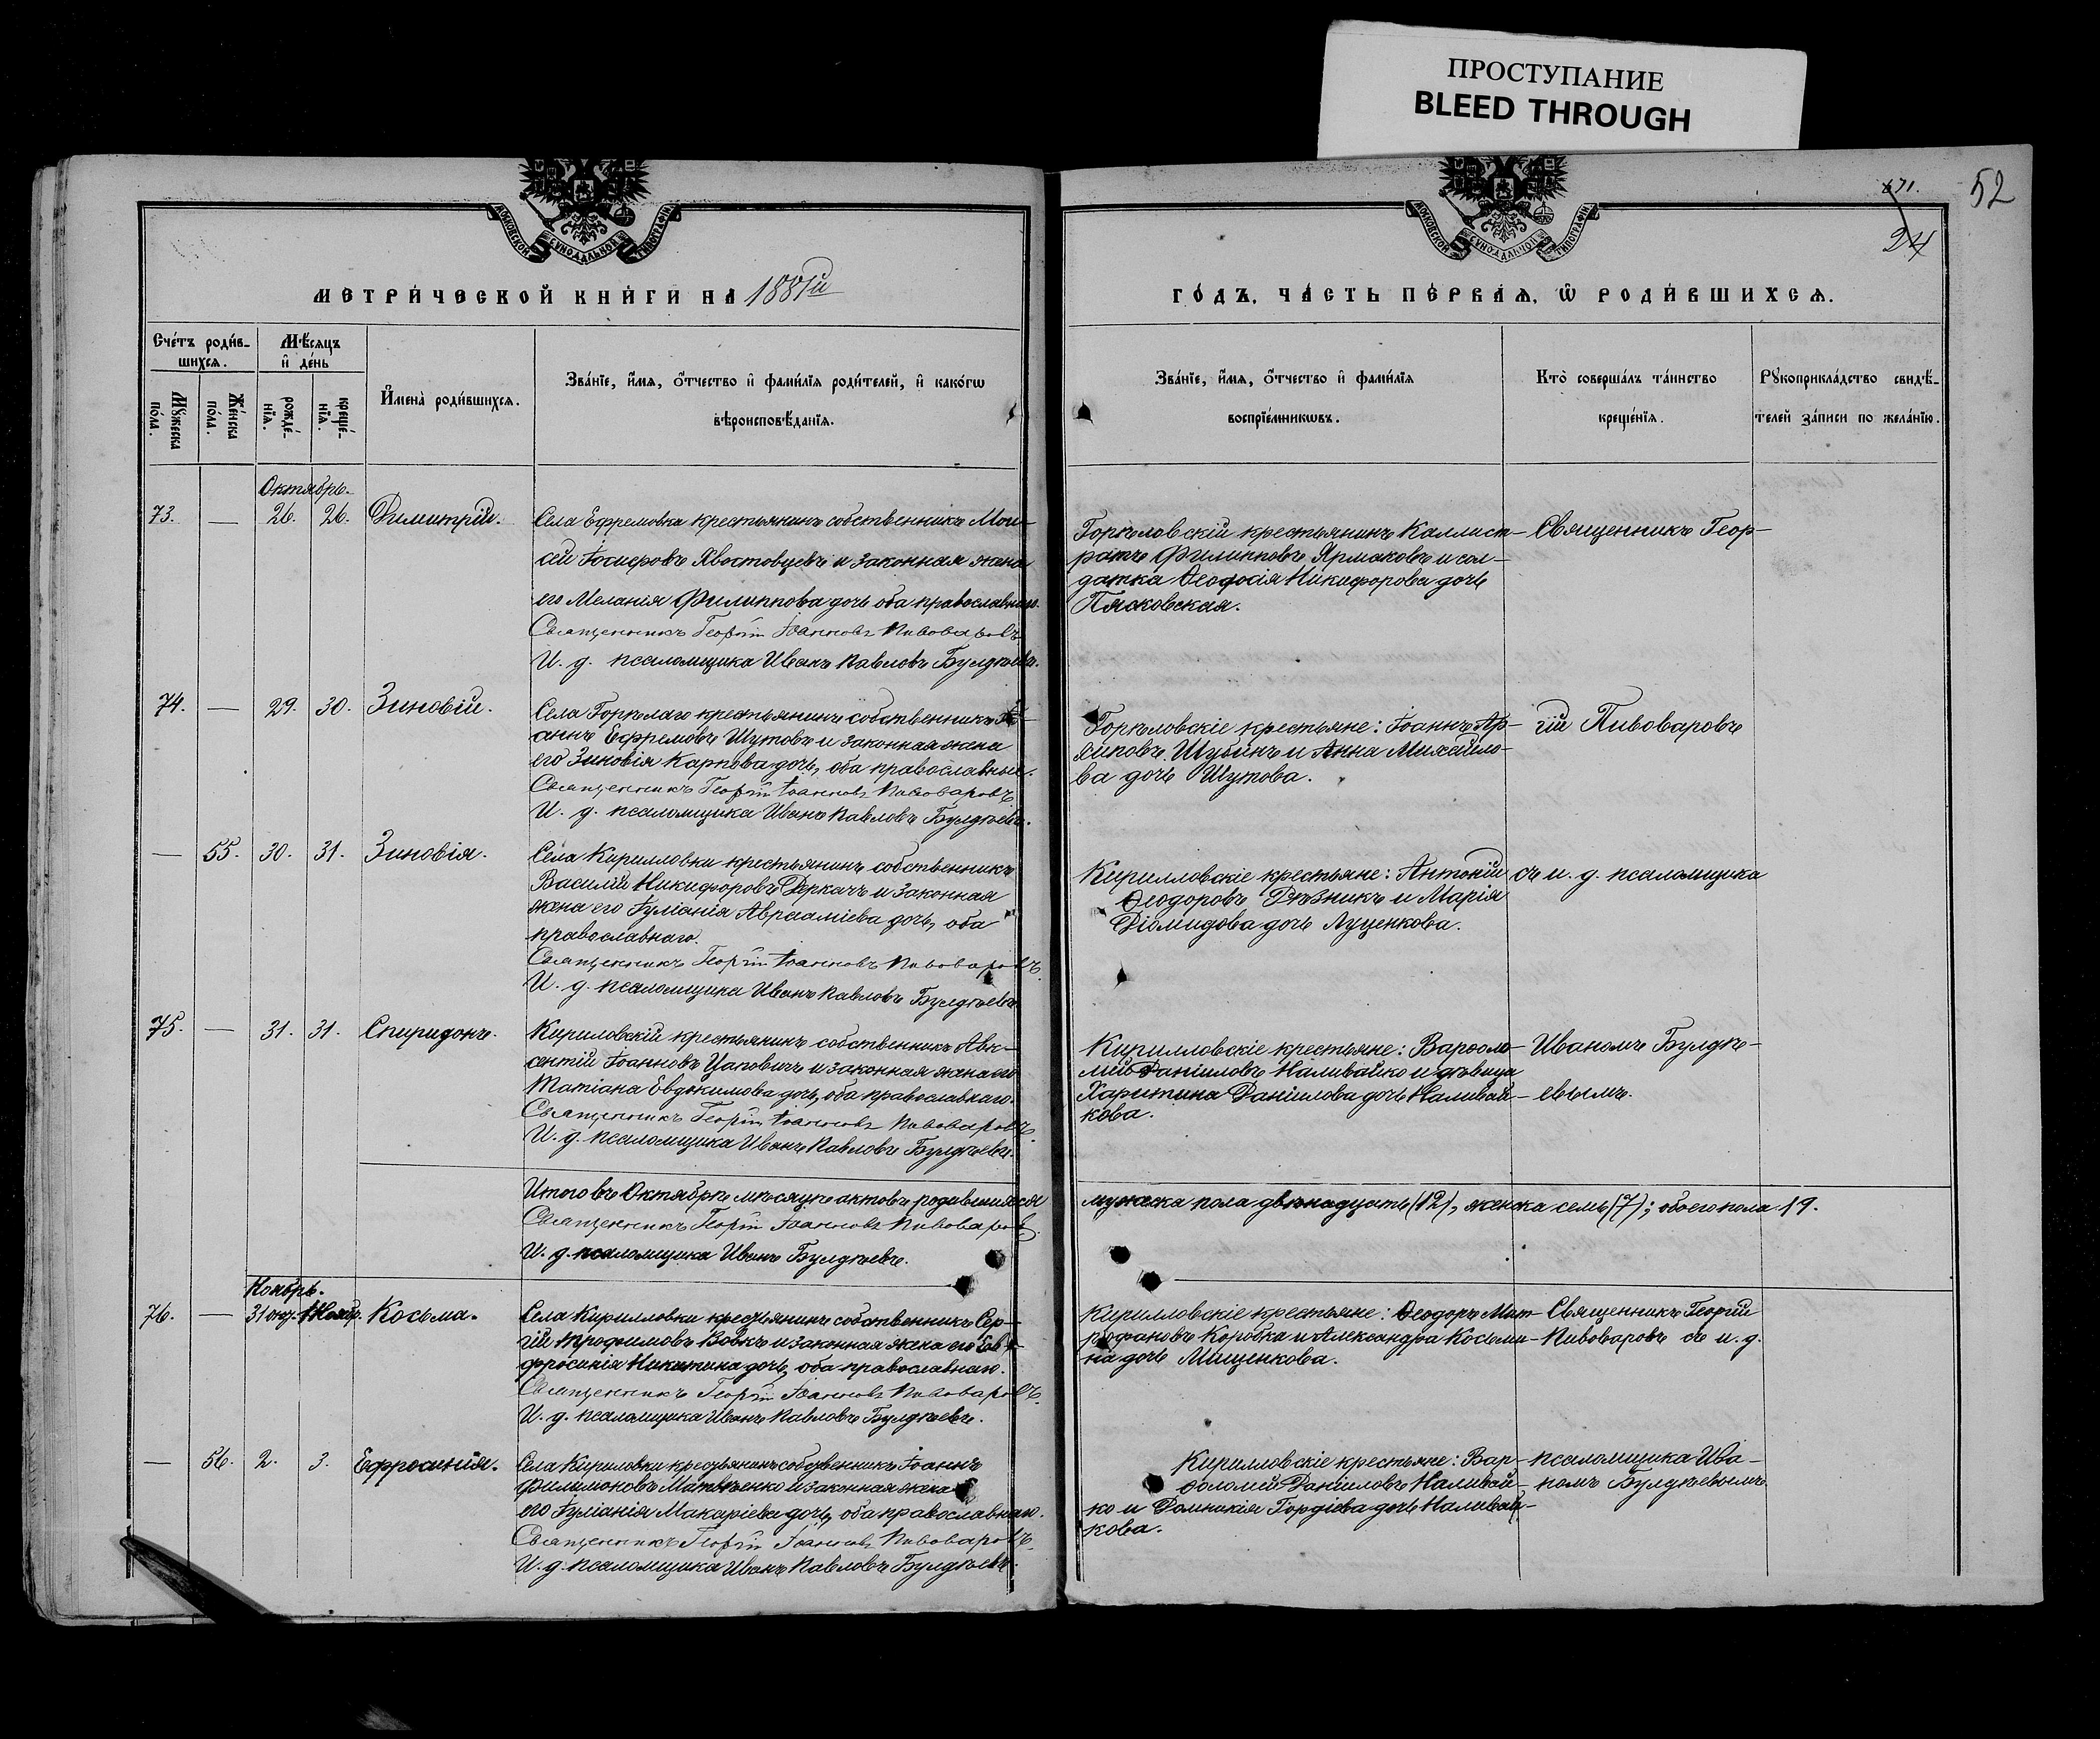 ПРОСТУПАНИЕ
BLEED THROUGH
52
24
МОСКОВСКОЙ СУНОДАЛЬНОЙ ТИПОГРАФІИ
МОСКОВСКОЙ СУНОДАЛЬНОЙ ТИПОГРАФІИ
МЕТРИ́ЧЕСКОЙ КНИ́ГИ НА 1881й
ГО́ДЪ, ЧА́СТЬ ПЕ́РВАѦ, Ѿ РОДИ́ВШИХСѦ.
Счéтъ роди́в-
шихсѧ.
Мѣ́сѧцъ
и҆ дéнь
Мꙋ́жеска
пóла.
Жéнска
пóла.
рождé-
нїѧ.
крещé-
нїѧ.
И҆менà роди́вшихсѧ.
Звáнїе, и҆́мѧ, ѻ҆́тчество и҆ фами́лїѧ роди́телей, и҆ какóгѡ
вѣроисповѣ́данїѧ.
Звáнїе, и҆́мѧ, ѻ҆́тчество и҆ фами́лїѧ
воспрїéмникѡвъ.
Ктò совершáлъ тáинство
крещéнїѧ.
Рꙋкоприклáдство свидѣ́-
телей зáписи по желáнїю.
Октябрь.
73. — 26. 26. Димитрій.
Села Ефремовка крестьянинъ собственникъ Мои-
сей Іосифовъ Хвостовцевъ и законная жена
его Меланія Филиппова дочь оба православнаго.
Священникъ Георгій Іоанновъ Пивоваровъ
И. д. псаломщика Иванъ Павловъ Булдѣевъ.
Горѣловскій крестьянинъ Каллист-
ратъ Филипповъ Ярмаковъ и сол-
датка Ѳеодосія Никифорова дочь
Пясковская.
Священникъ Геор-
74. — 29. 30. Зиновій.
Села Горѣлаго крестьянинъ собственникъ Іо-
аннъ Ефремовъ Шутовъ и законная жена
его Зиновія Карпова дочь, оба православные.
Священникъ Георгій Іоанновъ Пивоваровъ
И. д. псаломщика Иванъ Павловъ Булдѣевъ.
Горѣловскіе крестьяне: Іоаннъ Ар-
хиповъ Шубинъ и Анна Михайло-
ва дочь Шутова.
гій Пивоваровъ
— 55. 30. 31. Зиновія.
Села Кирилловки крестьянинъ собственникъ
Василій Никифоровъ Деркачъ и законная
жена его Іуліанія Авраамiева дочь, оба
православнаго.
Священникъ Георгій Іоанновъ Пивоваровъ.
И. д. псаломщика Иванъ Павловъ Булдѣевъ
Кирилловскіе крестьяне: Антоній
Ѳеодоровъ Рѣзникъ и Марія
Діомидова дочь Луценкова.
съ и. д. псаломщика
75. — 31. 31. Спиридонъ.
Кириловскій крестьянинъ собственникъ Авк-
сентій Іоанновъ Цаповичъ и законная жена его
Татіана Евдокимова дочь, оба православнаго.
Священникъ Георгій Іоанновъ Пивоваровъ.
И. д. псаломщика Иванъ Павловъ Булдѣевъ.
Кирилловскіе крестьяне: Варѳоло-
мій Даніиловъ Наливайко и дѣвица
Харитина Даніилова дочь Наливай-
кова.
Иваномъ Булдѣ-
евымъ.
Итого въ Октябрѣ мѣсяцѣ актовъ родившихся
Священникъ Георгій Іоанновъ Пивоваровъ.
И. д. псаломщика Иванъ Булдѣевъ.
мужеска пола двѣнадцать (12), женска семь (7); обоего пола 19.
Ноябрь.
76. — 31 окт. 1 Нояб. Косьма.
Села Кирилловки крестьянинъ собственникъ Сер-
гій Трофимовъ Вовкъ и законная жена его Ев-
фросинія Никитина дочь, оба православнаго.
Священникъ Георгій Іоанновъ Пивоваровъ.
И. д. псаломщика Иванъ Павловъ Булдѣевъ.
Кирилловскіе крестьяне: Ѳеодоръ Мит-
рофановъ Коробка и Александра Косьми-
на дочь Мищенкова.
Священникъ Георгій
Пивоваровъ съ и. д.
— 56. 2. 3. Ефросинія.
Села Кириловки крестьянинъ собственникъ Іоаннъ
Филимоновъ Матвѣенко и законная жена
его Іуліанія Макаріева дочь, оба православнаго.
Священникъ Георгій Іоанновъ Пивоваровъ.
И. д. псаломщика Иванъ Павловъ Булдѣевъ.
Кирилловскіе крестьяне: Вар-
ѳоломій Даніиловъ Наливай-
ко и Домникія Гордіева дочь Наливай-
кова.
псаломщика Ива-
номъ Булдѣевымъ.